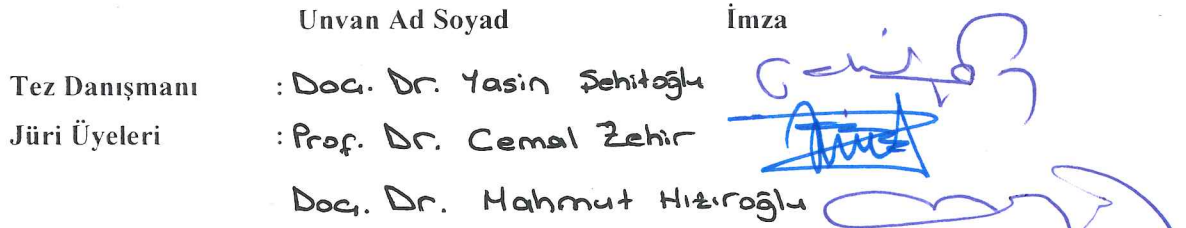 Unvan Ad Soyad İmza
Tez Danışmanı : Doç. Dr. Yasin Şehitoğlu
Jüri Üyeleri : Prof. Dr. Cemal Zehir
Doç. Dr. Mahmut Hızıroğlu